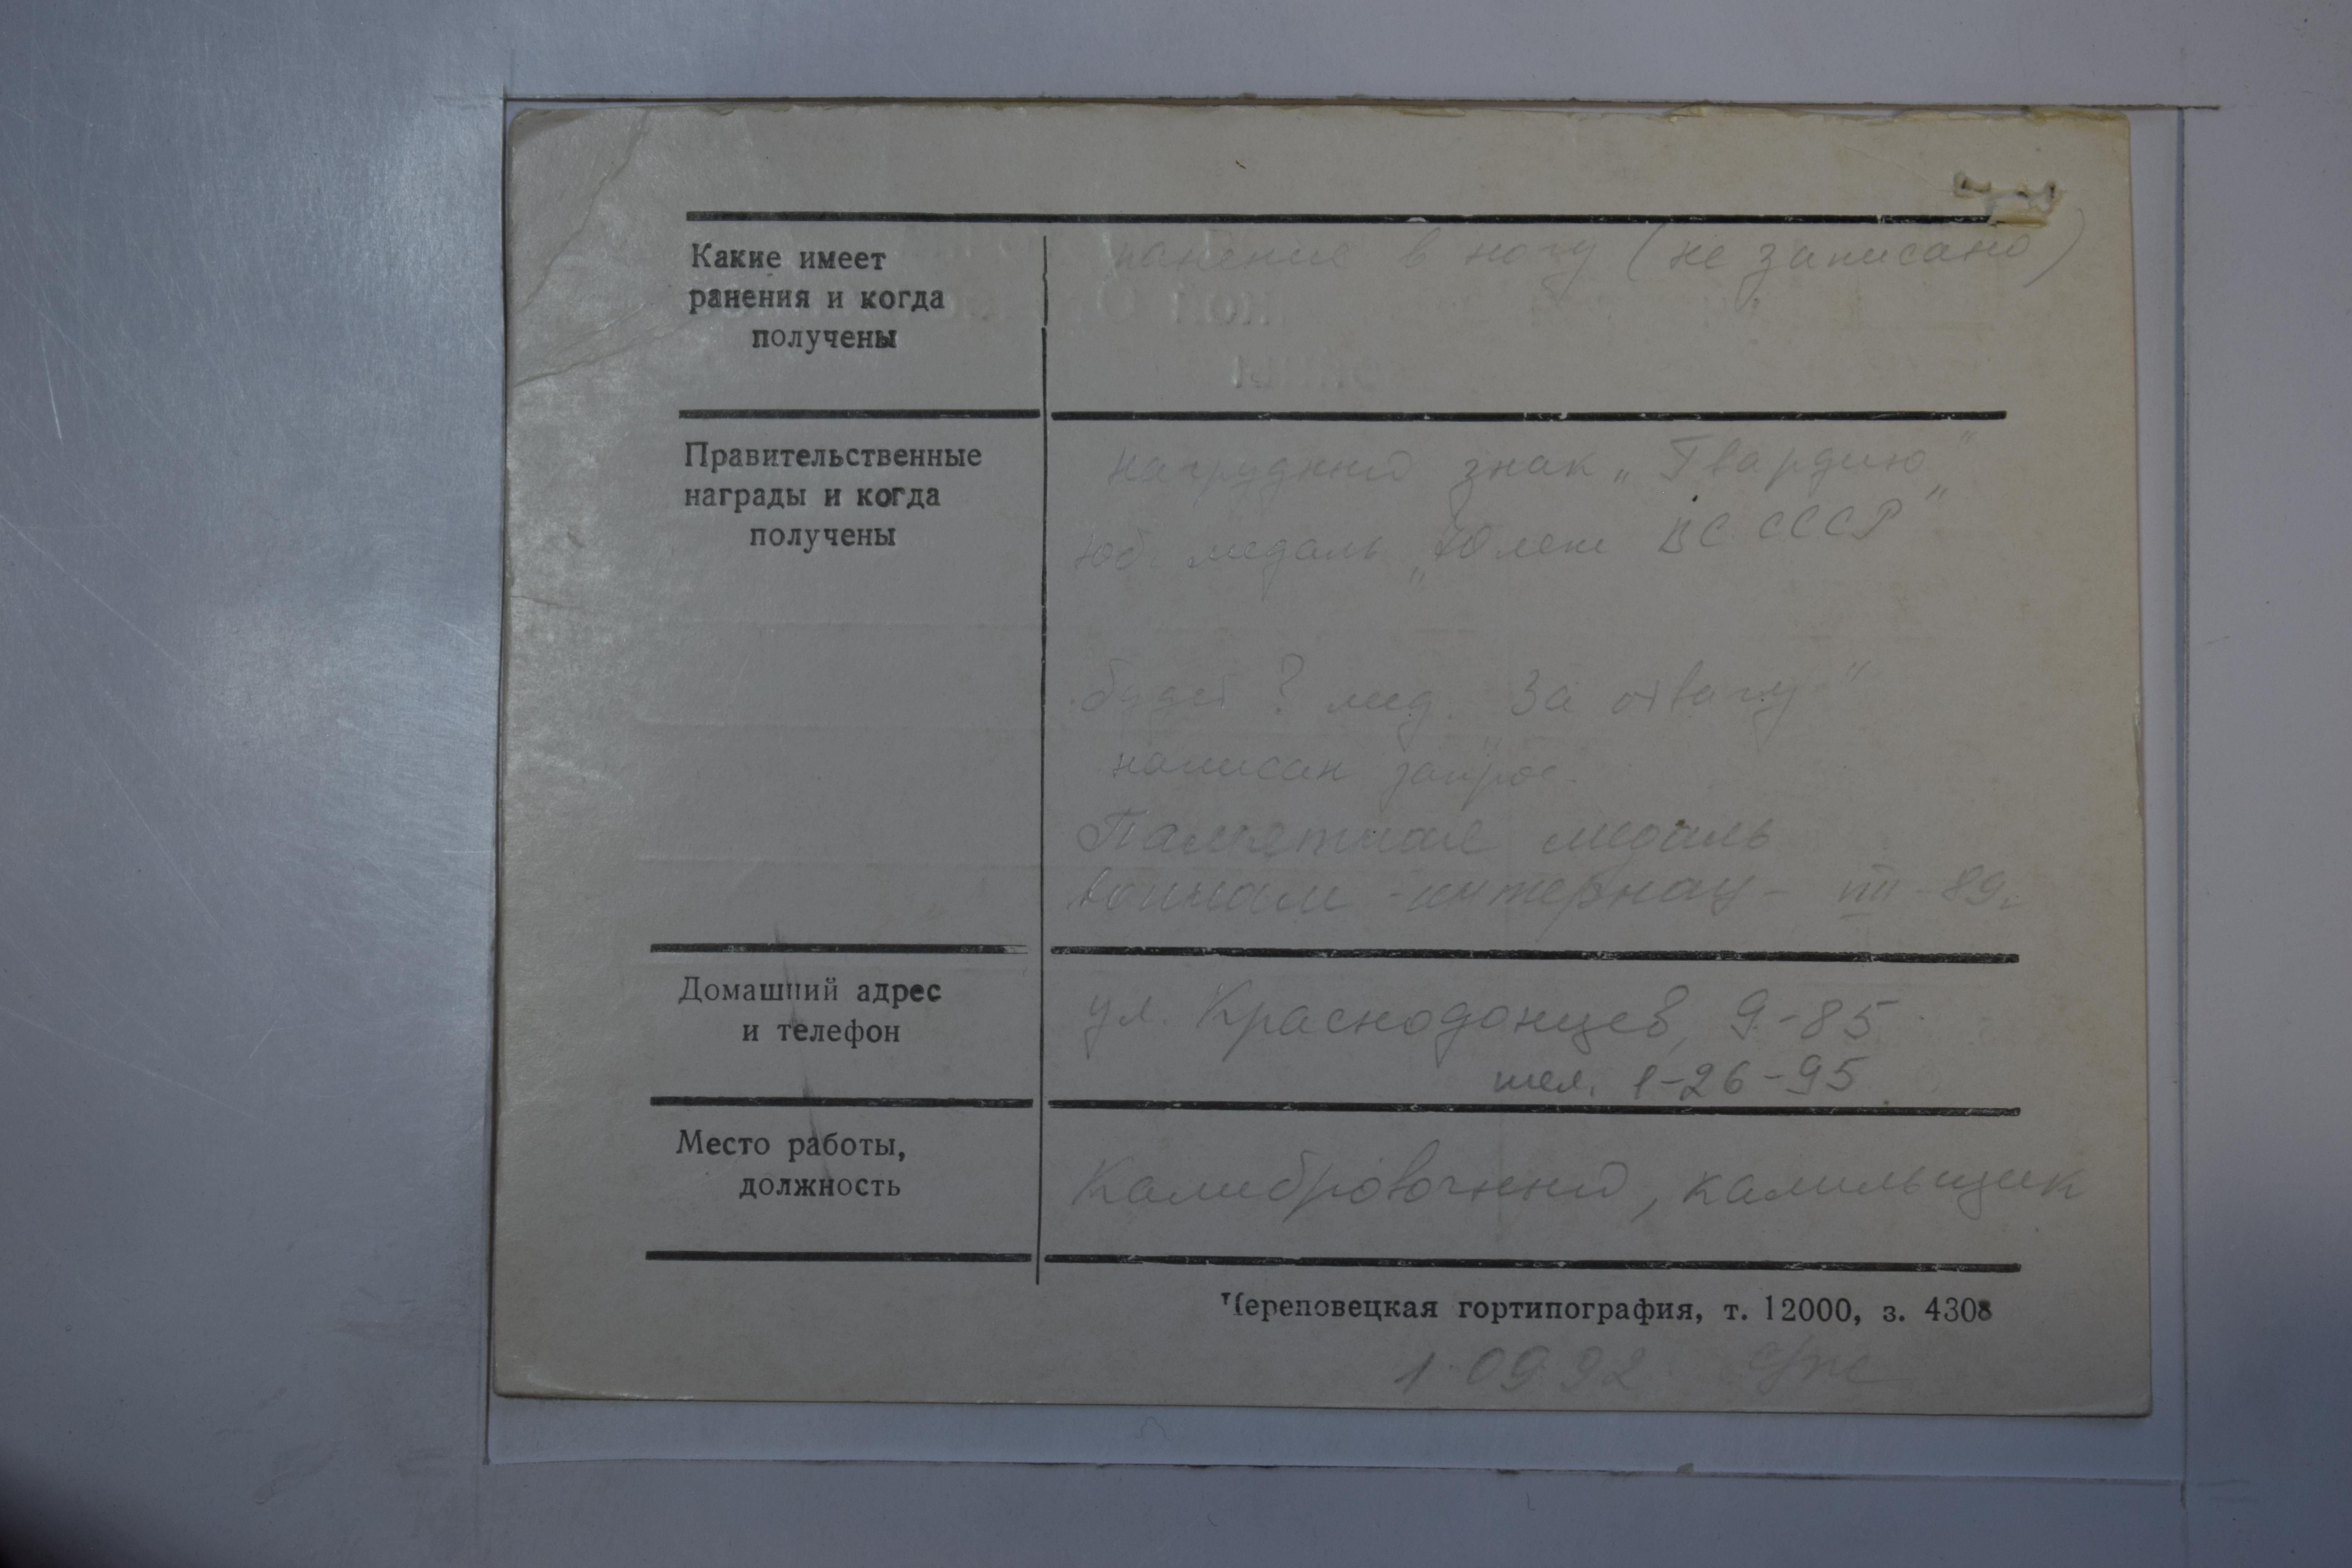 Какие имеет
ранения и когда
получены
ранение в ногу (не записано)
Правительственные
награды и когда
получены
нагрудный знак „Гвардию"
юб. медаль „70 лет ВС СССР"
будет ? мед. „За отвагу"
написан запрос
Памятная медаль
воинам-интернац-
89г
Домашний адрес
и телефон
ул. Краснодонцев, 9-85
тел. 1-26-95
Место работы,
должность
Калибровочный, калильщик
Череповецкая гортипография, т. 12000, з. 4308
1.09.92